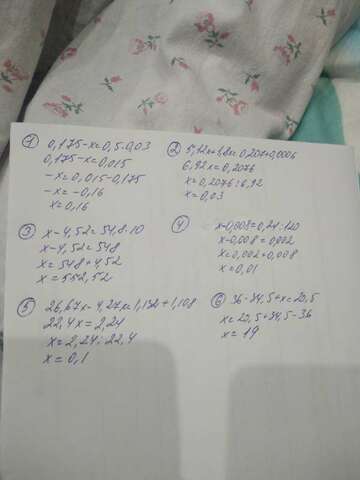 1 0,175-x=0,5·0,03
0,175-x=0,015
-x=0,015-0,175
-x=-0,16
x=0,16
2 5,12x+1,8x=0,207+0,0006
6,92x=0,2076
x=0,2076:6,92
x=0,03
3 x-4,52=54,8·10
x-4,52=548
x=548+4,52
x=552,52
4 x-0,008=0,24:120
x-0,008=0,002
x=0,002+0,008
x=0,01
5 26,67x-4,27x=1,132+1,108
22,4x=2,24
x=2,24:22,4
x=0,1
6 36-34,5+x=20,5
x=20,5+34,5-36
x=19